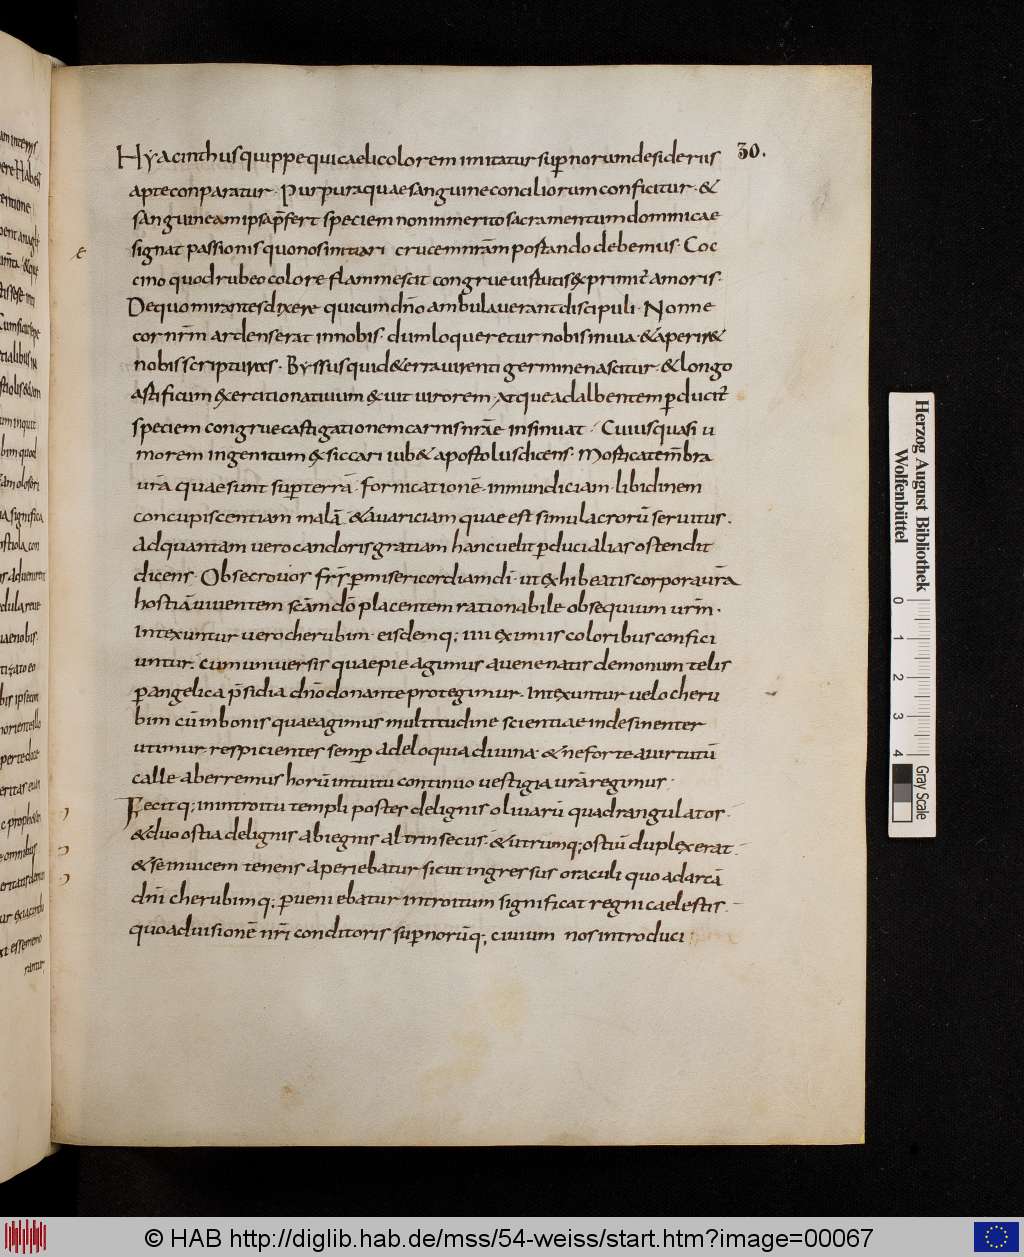 30.
Hyacinthus quippe qui caeli colorem imitatur sup̄norum desideriis
apte conparatur · Purpura quae sanguine conciliorum conficitur · &
sanguineam ipsa p̄fert speciem non inmerito sacramentum dominicae
signat passionis quo nos initiari crucem nr̄am portando debemus · Coc
cino quod rubeo colore flammescit congrue virtutis exprimit̄ amoris ·
De quo mirantes dixere qui cum dn̄o ambulaverant discipuli · Nonne
cor nr̄m ardens erat in nobis · dum loqueretur nobis in via · & aperir&
nobis scripturas · Byssus quid& erra virenti germine nascitur · & longo
artificum exercitio nativum exuit virorem atque ad albentem p̄ducit̄
speciem congrue castigationem carnis nr̄ae insinuat · Cuius quasi u
morem ingenitum exsiccari iub& apostolus dicens · Mortificate mēbra
urā quae sunt sup̄ terrā · fornicationē · inmundiciam · libidinem
concupiscentiam malā & avariciam quae est simulacrorū servitus .
Ad quantam vero candoris gratiam hanc velit p̄duci alias ostendit
dicens · Obsecro vos fr̄s p̄ misericordiam dī · ut exhibeatis corpora ur̄a
hostiā viventem sc̄am dō placentem rationabile obsequium ur̄m ·
Intexuntur vero cherubim · eisdemq; IIII eximiis coloribus confici
untur · cum universis quae pie agimus a venenatis demonum telis
p̄ angelica p̄sidia dn̄o donante protegimur · Intexuntur velo cheru
bim cū in bonis quae agimus multitudine scientiae indesinenter
utimur respicientes semp̄ ad eloquia divina · & ne forte a virtutū
calle aberremus horū intuitu continuo vestigia urā regimus ·
Fecitq; in introitu templi postes de lignis olivarū quadrangulatos ·
& duo ostia de lignis abiegnis altrinsecus · & utrumq; ostiū duplex erat ·
& se invicem tenens aperiebatur sicut ingressus oraculi quo ad arcā
dn̄i cherubimq; p̄veniebatur introitum significat regni caelestis ·
quo ad visionē nr̄i conditoris sup̄norūq; civium nos introduci
Herzog August Bibliothek
Wolfenbüttel
0 1 2 3 4
Gray Scale
© HAB http://diglib.hab.de/mss/54-weiss/start.htm?image=00067